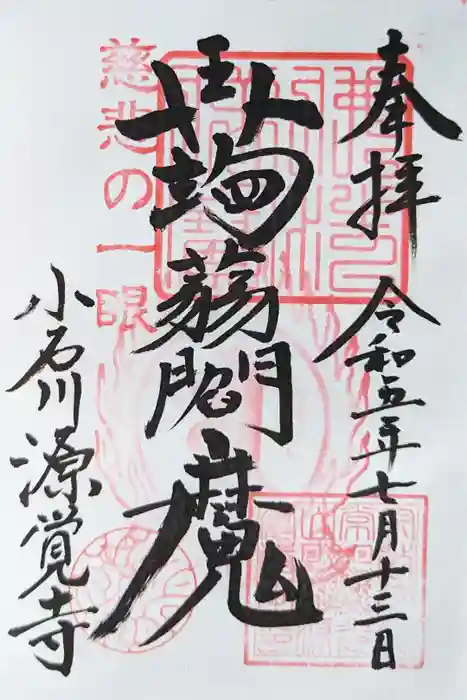 奉拝
令和五年七月十三日
蒟蒻閻魔
慈悲の一眼
小石川源覚寺